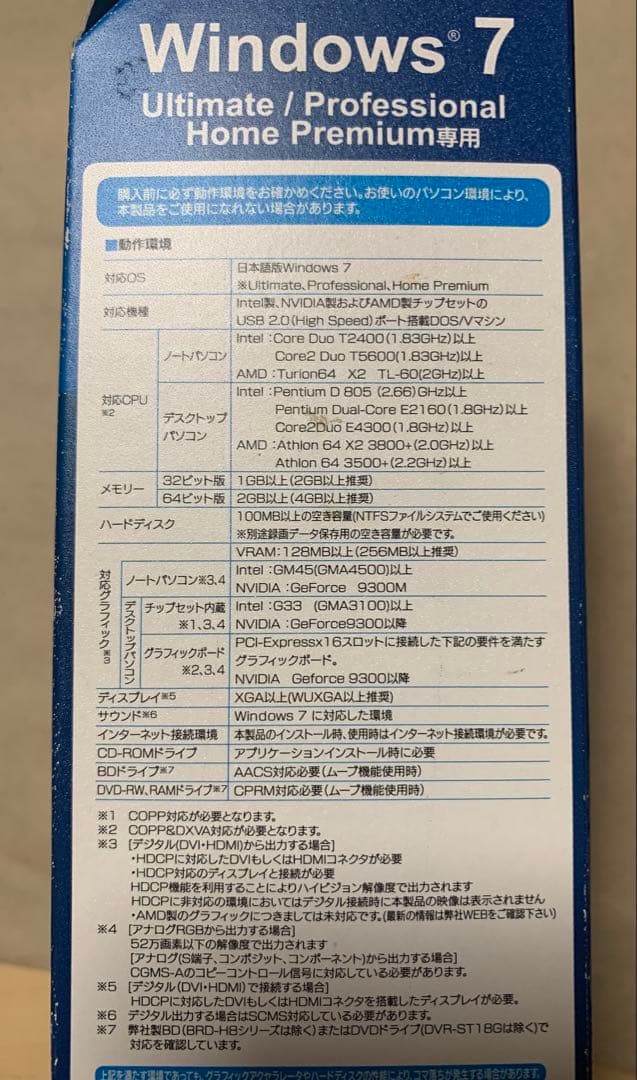 Windows® 7
Ultimate / Professional
Home Premium専用
購入前に必ず動作環境をお確かめください。お使いのパソコン環境により、
本製品をご使用になれない場合があります。
■動作環境
対応OS
日本語版Windows 7
※Ultimate、Professional、Home Premium
対応機種
Intel製、NVIDIA製およびAMD製チップセットの
USB 2.0(High Speed)ポート搭載DOS/Vマシン
対応CPU
※2
ノートパソコン
Intel :Core Duo T2400(1.83GHz)以上
Core2 Duo T5600(1.83GHz)以上
AMD :Turion64 X2 TL-60(2GHz)以上
デスクトップ
パソコン
Intel :Pentium D 805 (2.66)GHz以上
Pentium Dual-Core E2160(1.8GHz)以上
Core2Duo E4300(1.8GHz)以上
AMD :Athlon 64 X2 3800+(2.0GHz)以上
Athlon 64 3500+(2.2GHz)以上
メモリー
32ビット版 1GB以上(2GB以上推奨)
64ビット版 2GB以上(4GB以上推奨)
ハードディスク
100MB以上の空き容量(NTFSファイルシステムでご使用ください)
※別途録画データ保存用の空き容量が必要です。
対応グラフィック※3
VRAM:128MB以上(256MB以上推奨)
ノートパソコン※3,4
Intel :GM45(GMA4500)以上
NVIDIA :GeForce 9300M
デスクトップパソコン
チップセット内蔵
※1,3,4
Intel :G33 (GMA3100)以上
NVIDIA :GeForce9300以降
グラフィックボード
※2,3,4
PCI-Expressx16スロットに接続した下記の要件を満たす
グラフィックボード。
NVIDIA Geforce 9300以降
ディスプレイ※5 XGA以上(WUXGA以上推奨)
サウンド※6 Windows 7 に対応した環境
インターネット接続環境 本製品のインストール時、使用時はインターネット接続環境が必要です。
CD-ROMドライブ アプリケーションインストール時に必要
BDドライブ※7 AACS対応必要(ムーブ機能使用時)
DVD-RW、RAMドライブ※7 CPRM対応必要(ムーブ機能使用時)
※1 COPP対応が必要となります。
※2 COPP&DXVA対応が必要となります。
※3 [デジタル(DVI・HDMI)から出力する場合]
・HDCPに対応したDVIもしくはHDMIコネクタが必要
・HDCP対応のディスプレイと接続が必要
HDCP機能を利用することによりハイビジョン解像度で出力されます
HDCPに非対応の環境においてはデジタル接続時に本製品の映像は表示されません
・AMD製のグラフィックにつきましては未対応です。(最新の情報は弊社WEBをご確認下さい)
※4 [アナログRGBから出力する場合]
52万画素以下の解像度で出力されます
[アナログ(S端子、コンポジット、コンポーネント)から出力する場合]
CGMS-Aのコピーコントロール信号に対応している必要があります。
※5 [デジタル(DVI・HDMI)で接続する場合]
HDCPに対応したDVIもしくはHDMIコネクタを搭載したディスプレイが必要。
※6 デジタル出力する場合はSCMS対応している必要があります。
※7 弊社製BD(BRD-H8シリーズは除く)またはDVDドライブ(DVR-ST18Gは除く)で
対応を確認しています。
上記を満たす環境であっても、グラフィックアクセラレータやハードディスクの性能により、コマ落ちが発生する場合があります。